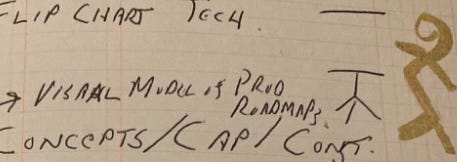 FLIP CHART TECH.
→ VISUAL MODEL OF PROD
ROADMAPS
CONCEPTS/CAP/CONT.